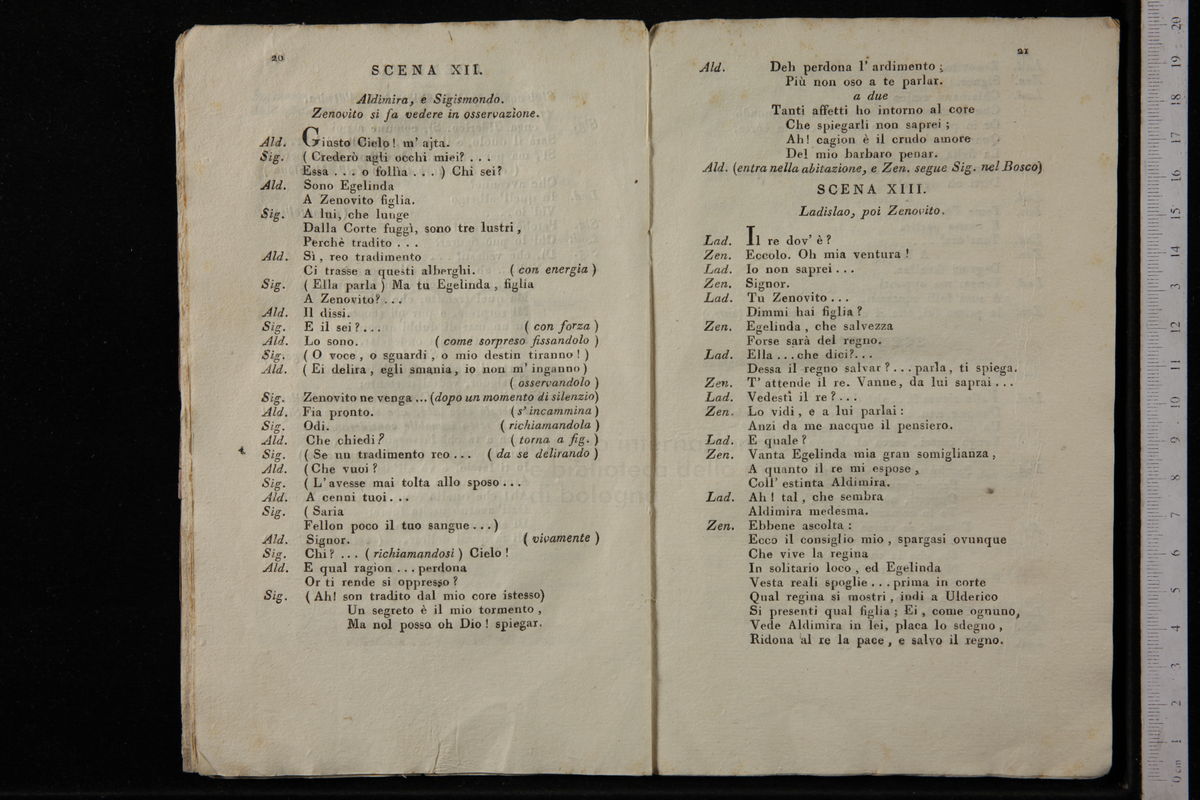 20
SCENA XII.
Aldimira, e Sigismondo.
Zenovito si fa vedere in osservazione.
Ald. Giusto Cielo! m' ajta.
Sig. ( Crederò agli occhi miei? . . .
Essa . . . o follìa . . . ) Chi sei?
Ald. Sono Egelinda
A Zenovito figlia.
Sig. A lui, che lunge
Dalla Corte fuggì, sono tre lustri,
Perchè tradito . . .
Ald. Sì, reo tradimento
Ci trasse a questi alberghi. ( con energia )
Sig. ( Ella parla ) Ma tu Egelinda, figlia
A Zenovito? . . .
Ald. Il dissi.
Sig. E il sei? . . . ( con forza )
Ald. Lo sono. ( come sorpreso fissandolo )
Sig. ( O voce, o sguardi, o mio destin tiranno! )
Ald. ( Ei delira, egli smania, io non m' inganno )
( osservandolo )
Sig. Zenovito ne venga ... (dopo un momento di silenzio)
Ald. Fia pronto. ( s' incammina )
Sig. Odi. ( richiamandola )
Ald. Che chiedi? ( torna a fig. )
Sig. ( Se un tradimento reo . . . ( da se delirando )
Ald. ( Che vuoi?
Sig. ( L' avesse mai tolta allo sposo . . .
Ald. A cenni tuoi. . .
Sig. ( Saria
Fellon poco il tuo sangue . . .)
Ald. Signor. ( vivamente )
Sig. Chi? . . . ( richiamandosi ) Cielo!
Ald. E qual ragion . . . perdona
Or ti rende si oppresso?
Sig. ( Ah! son tradito dal mio core istesso)
Un segreto è il mio tormento,
Ma nol posso oh Dio! spiegar.
21
Ald. Deh perdona l' ardimento;
Più non oso a te parlar.
a due
Tanti affetti ho intorno al core
Che spiegarli non saprei;
Ah! cagion è il crudo amore
Del mio barbaro penar.
Ald. (entra nella abitazione, e Zen. segue Sig. nel Bosco)
SCENA XIII.
Ladislao, poi Zenovito.
Lad. Il re dov' è?
Zen. Eccolo. Oh mia ventura!
Lad. Io non saprei . . .
Zen. Signor.
Lad. Tu Zenovito . . .
Dimmi hai figlia?
Zen. Egelinda, che salvezza
Forse sarà del regno.
Lad. Ella . . . che dici?. . .
Dessa il regno salvar? . . . parla, ti spiega.
Zen. T' attende il re. Vanne, da lui saprai . . .
Lad. Vedesti il re? . . .
Zen. Lo vidi, e a lui parlai:
Anzi da me nacque il pensiero.
Lad. E quale?
Zen. Vanta Egelinda mia gran somiglianza,
A quanto il re mi espose,
Coll' estinta Aldimira.
Lad. Ah! tal, che sembra
Aldimira medesma.
Zen. Ebbene ascolta:
Ecco il consiglio mio, spargasi ovunque
Che vive la regina
In solitario loco, ed Egelinda
Vesta reali spoglie . . . prima in corte
Qual regina si mostri, indi a Ulderico
Si presenti qual figlia; Ei, come ognuno,
Vede Aldimira in lei, placa lo sdegno,
Ridona al re la pace, e salvo il regno.